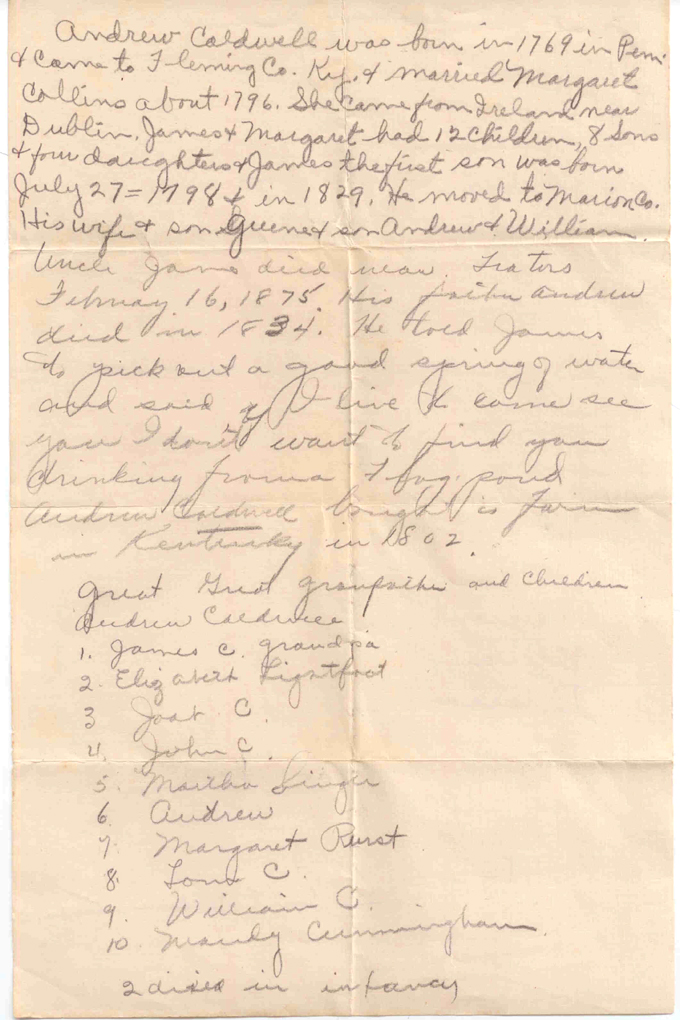 Andrew Caldwell was born in 1769 in Penn
& Came to Fleming Co. Ky. & married Margaret
Collins about 1796. She Came from Ireland near
Dublin. James & Margaret had 12 Children, 8 Sons
& four daughters & James the first son was born
July 27=1798 & in 1829. He moved to Marion Co.
His wife & son Greene & son Andrew & William.
Uncle James died near
February 16, 1875. His father Andrew
died in 1834. He told James
to pick out a good spring of water
and said if I live to come see
you I don't want to find you
drinking from a Frog pond
Andrew Caldwell bought is farm
in Kentucky in 1802.
Great Great Granfather and Children
Andrew Caldwell
1. James C. grandpa
2. Elizabeth Lightfoot
3 C.
4. John C.
5. Martha
6. Andrew
7. Margaret
8. C.
9. William C.
10. Cunningham
2 died in infancy